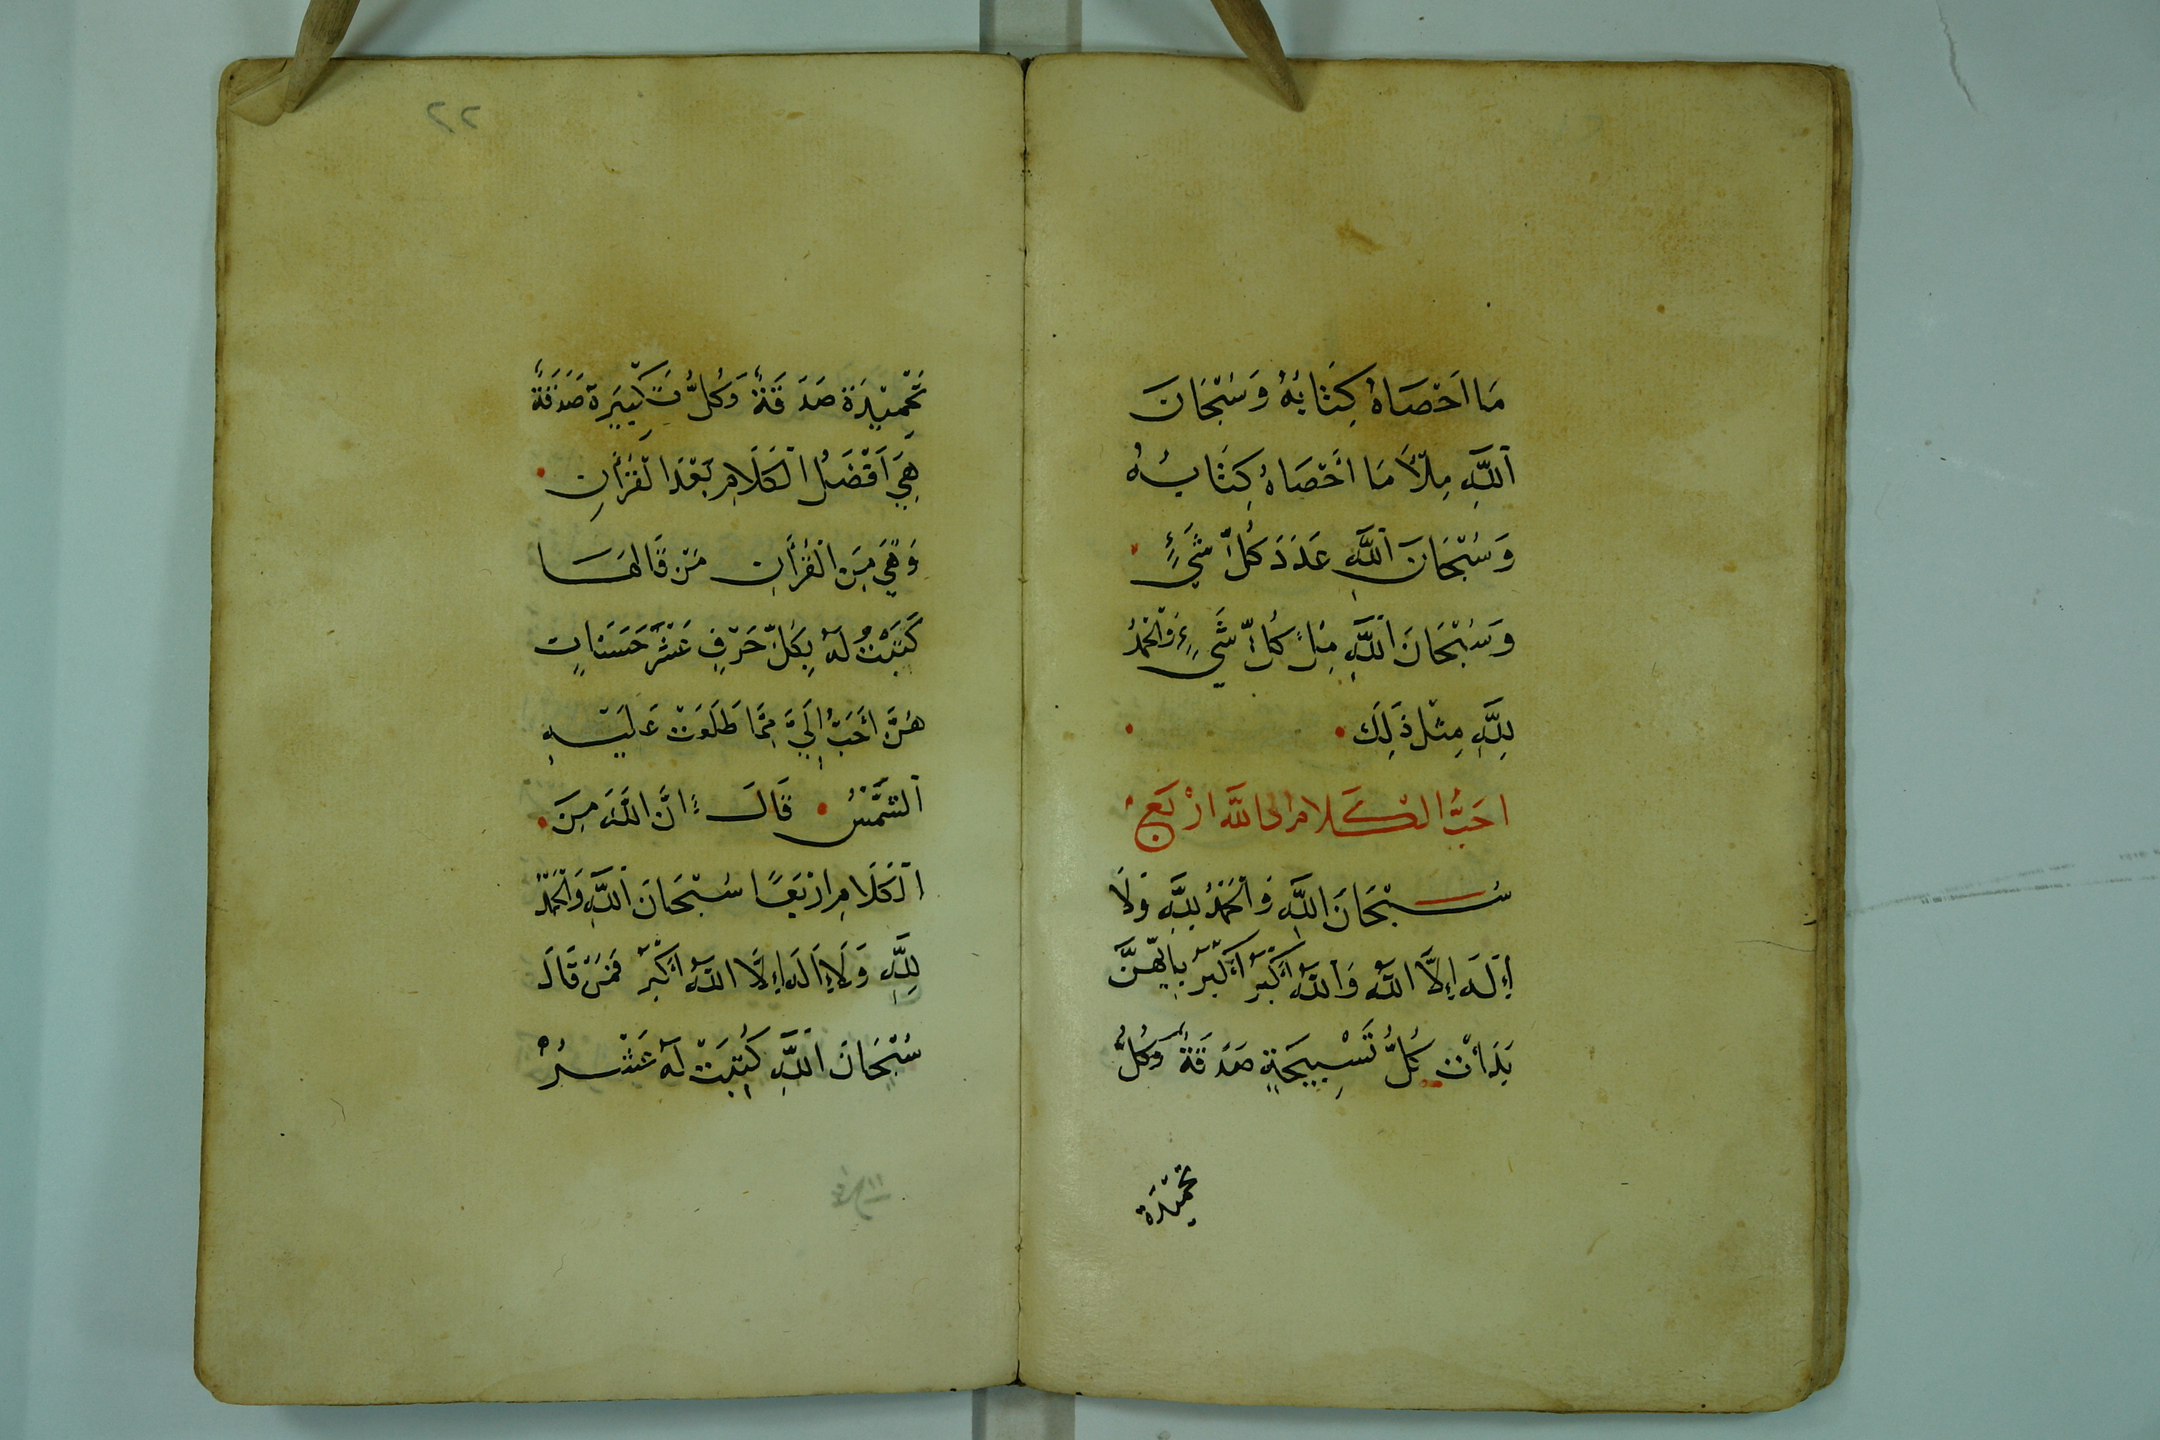 مَا اَحْصَاهُ كِتَابُهُ وَسُبْحَانَ
اَللَّهِ مِلْأَ مَا اَحْصَاهُ كِتَابُهُ
وَسُبْحَانَ اَللَّهِ عَدَدَ كُلِّ شَيْءٍ
وَسُبْحَانَ اَللَّهِ مِلْأَ كُلِّ شَيْءٍ وَالْحَمْدُ
لِلَّهِ مِثْلَ ذَلِكَ
احَبُّ الْكَلامِ الى اللَّه ارْبَع
سُبْحَانَ اللَّهِ وَالْحَمْدُ لِلَّهِ وَلَا
إِلَهَ إِلَّا اللَّهُ وَاللَّهُ أَكْبَرُ أَكْبَرُ بِأَيِّهِنَّ
بَدَأْتَ كُلُّ تَسْبِيحَةٍ صَدَقَةٌ وَكُلُّ
تحْمِيْدَة
٢٢
تَحْمِيْدَة صَدَقَةٌ وَكُلُّ تَكْبِيرَة صَدَقَةٌ
هِيَ اَفْضَلُ الْكَلَامِ بَعْدَ الْقُرْأَنِ
وَهِيَ مِنَ الْقُرْأَنِ مَنْ قَالَهَا
كُتِبَتْ لَهُ بِكُلِّ حَرْفٍ عَشْرُ حَسَنَاتٍ
هُنَّ اَحَبُّ إِلَيَّ مِمَّا طَلَعَتْ عَلَيْهِ
اَلشَّمْسُ قَالَ إِنَّ اللَّهَ مِنَ
اَلْكَلَامِ ارْبَعًا سُبْحَانَ اَللَّهِ وَالْحَمْدُ
لِلَّهِ وَلَا إِلَهَ إِلَّا اللَّهُ أَكْبَرُ فَمَنْ قَالَ
سُبْحَانَ اَللَّهِ كُتِبَتْ لَهُ عَشْرُ